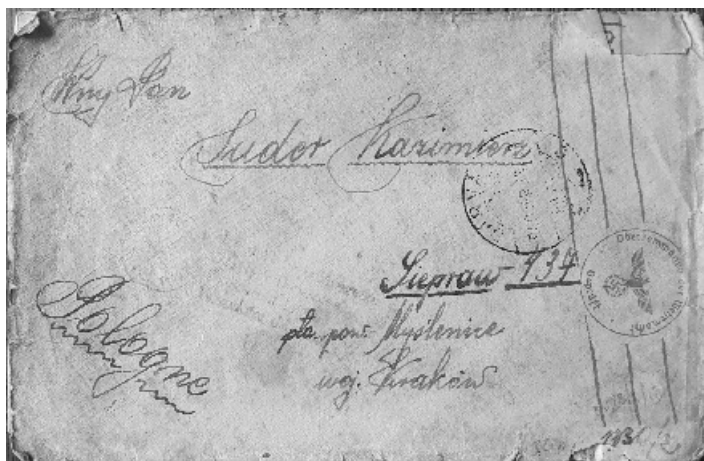 Wny Pan
Suder Kazimierz
Siepraw 134
pta. pow. Myślenice
woj. Kraków
Pologne
Oberkommando der Wehrmacht